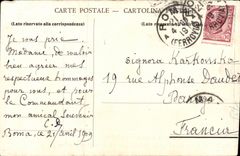 CARTE POSTALE - CARTOLINA
(Lato riservato alla corrispondenza)
ROMA
(FERROVIA)
Je vous prie
Madame, de vouloir
bien agréer mes
respectueux hommages
pour vous, et pour
le Commandant
mon amical souvenir
Roma, le 21 avril 1909
Signora Karkowska
19 rue Alphonse Daudet
Paris
Francia